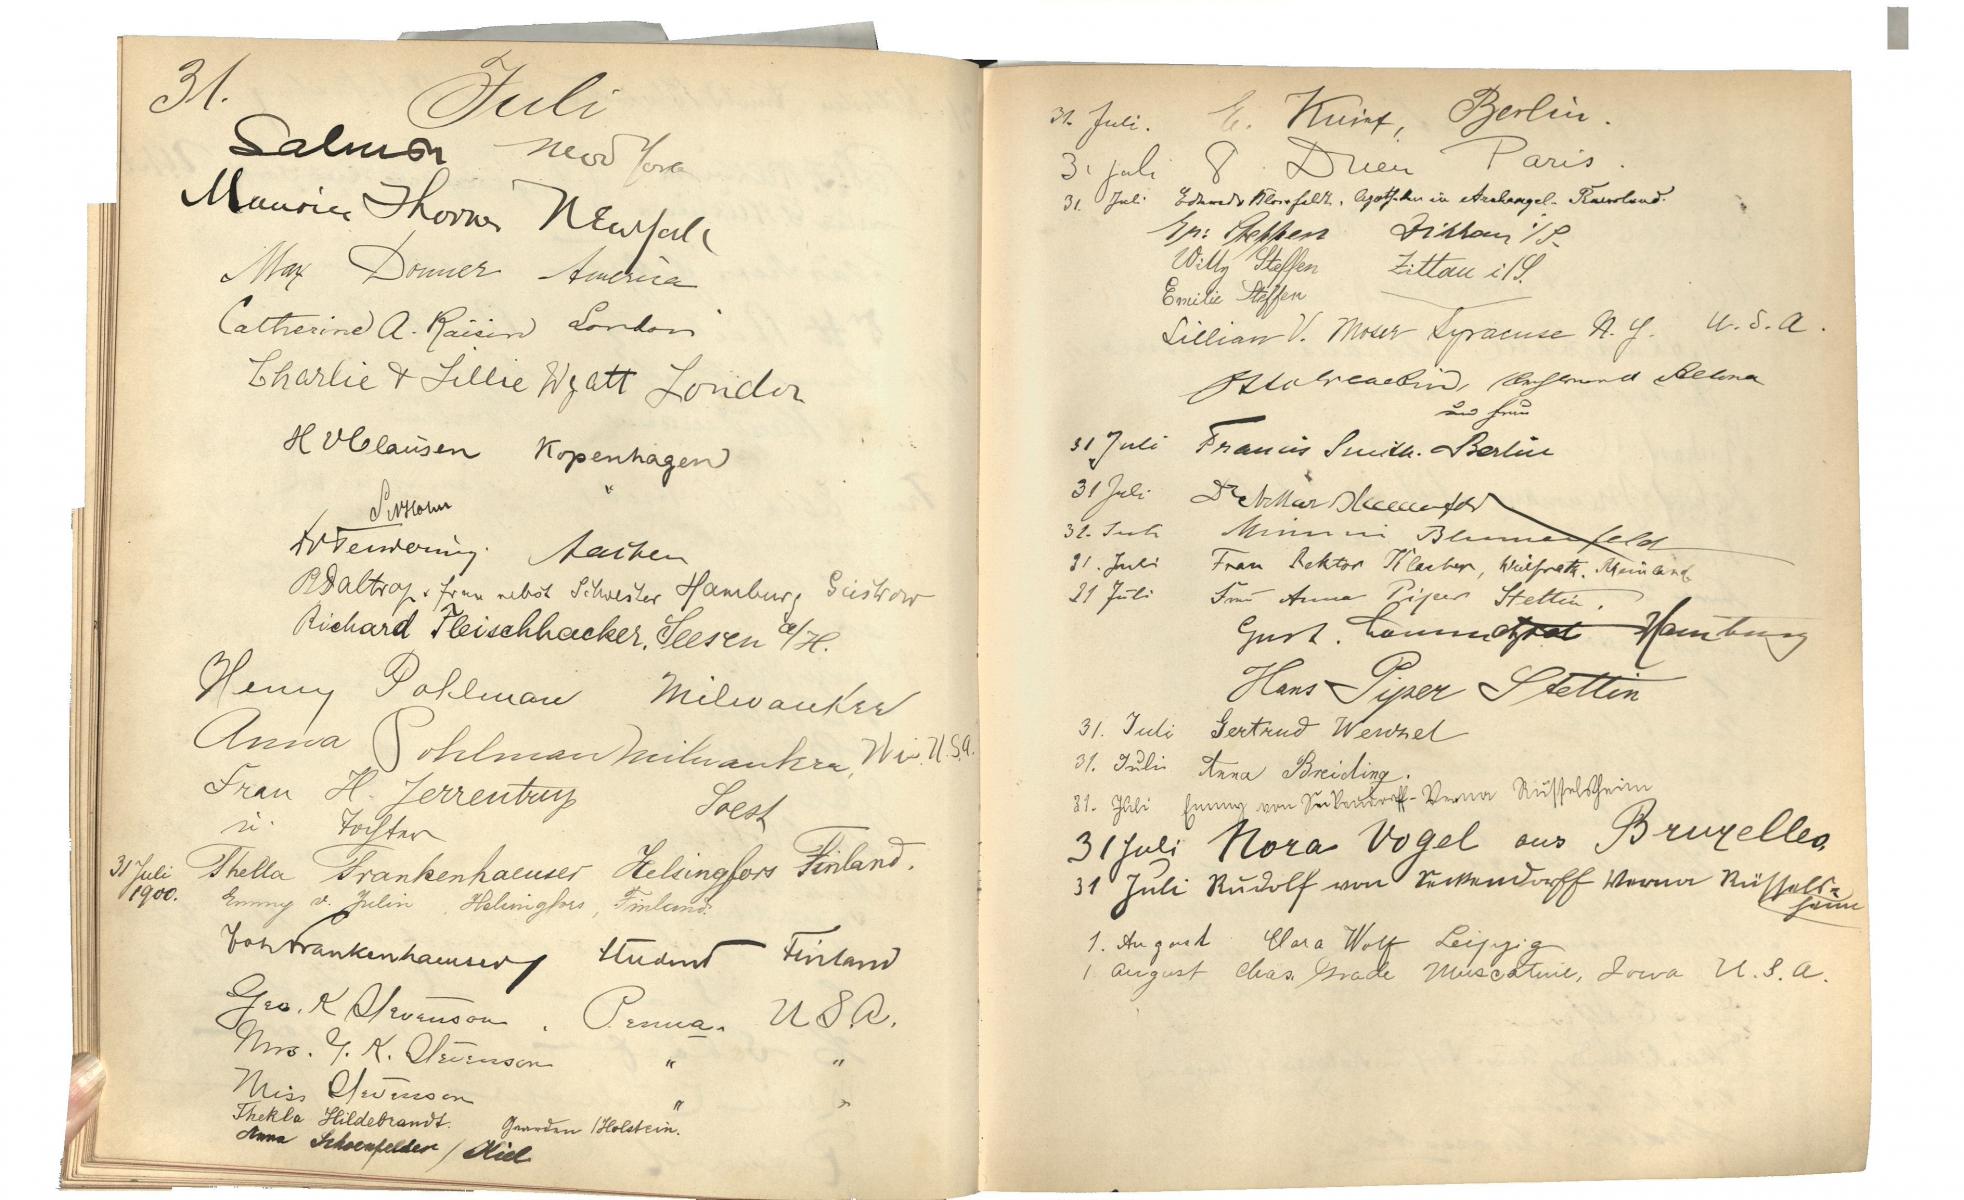 31. Juli
Salmon New York
Maurice Thorner New York
Max Donner America
Catherine A. Raisin London
Charlie & Lillie Wyatt London
H V Clausen Kopenhagen
"
Aachen
P. Daltrop u. frau nebst Schwester Hamburg Güstrow
Richard Fleischhacker, Seesen a/H.
Henry Pohlman Milwaukee
Anna Pohlman Milwaukee, Wis. U.S.A.
Frau H. Jerrentrup Soest
u. Tochter
31 Juli 1900. Thella Frankenhaeuser Helsingfors Finland.
Emmy v. Julin, Helsingfors, Finland.
Frankenhaeuser Student Finland
Geo. K Stevenson. Penna. U S.A.
Mrs. G. K. Stevenson " "
Miss Stevenson " "
Thekla Hildebrandt. Gaarden /Holstein.
Anna Schoenfelder / Kiel
31. Juli. E. Berlin.
31 Juli Paris.
31. Juli Apotheker in Archangel. Russland.
Steffen Zittau i/S.
Willy Steffen Zittau i/S.
Emilie Steffen
Lillian V. Moser Syracuse N. Y. U. S. A.
Altona
und Frau
31 Juli Francis Smith. Berlin
31 Juli Dr
31. Juli Blumenfeld
31. Juli Frau Rektor Klacher, Wülfrath. Rheinland
31 Juli Frau Anna Piper Stettin.
Gust. Hamburg
Hans Piper Stettin
31. Juli Gertrud Wenzel
31. Juli Anna Breiding.
31. Juli Emmy von Seckendorff-Verna Rüsselsheim
31 Juli Nora Vogel aus Bruxelles,
31 Juli Rudolf von Seckendorff Verna Rüssels=
heim
1. August Clara Wolf Leipzig
1 August Chas. Grade Muscatine, Iowa U. S. A.